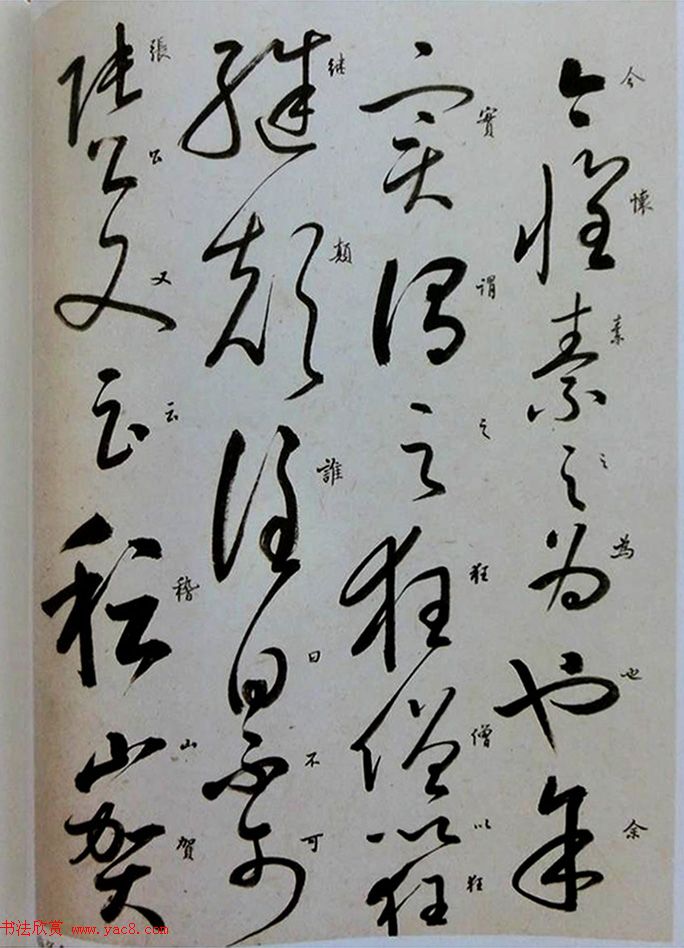 今懷素之為也余
實謂之狂僧以狂
继顛誰曰不可
張公又云稽山賀
书法欣赏 www.yac8.com